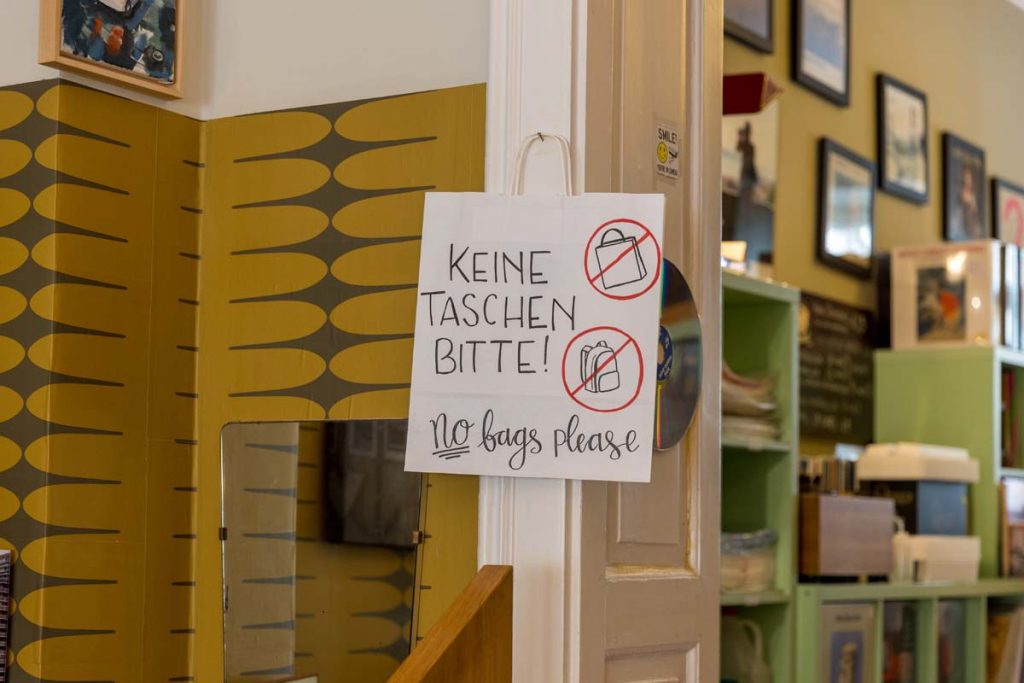 KEINE
TASCHEN
BITTE!
no bags please
SMILE!